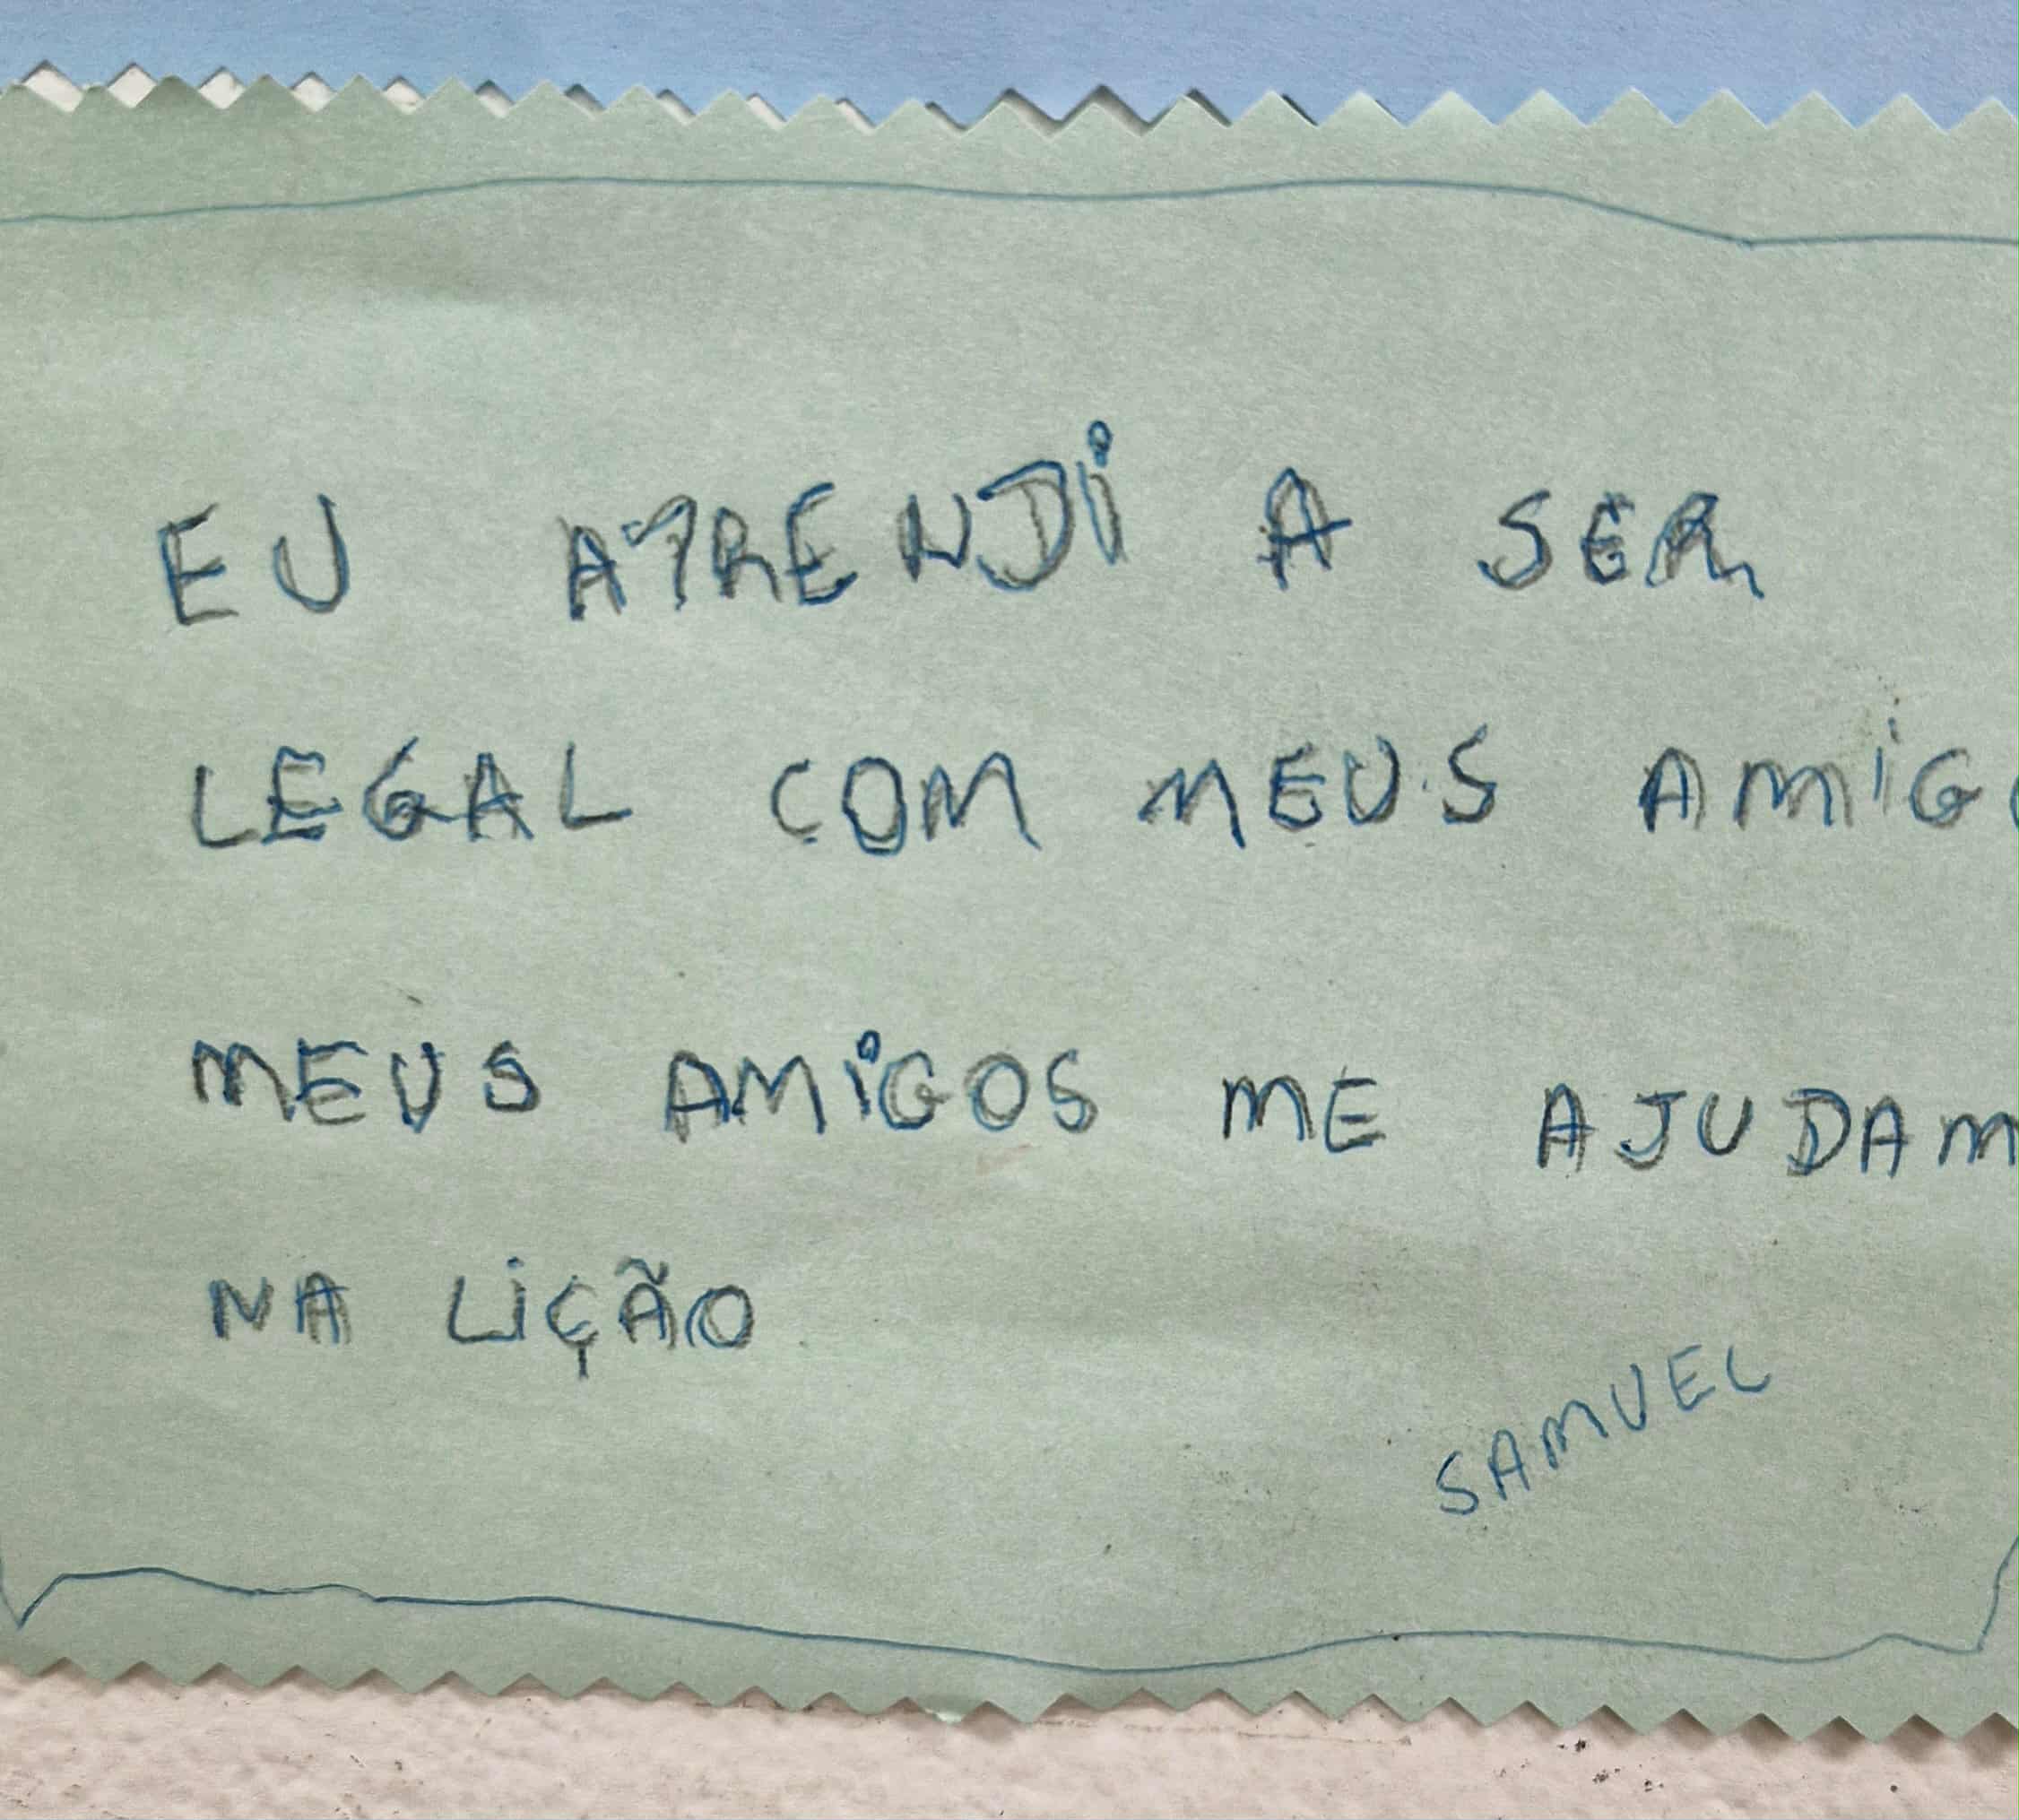 EU APRENDI A SER
LEGAL COM MEUS AMIGO
MEUS AMIGOS ME AJUDAM
NA LIÇÃO
SAMUEL